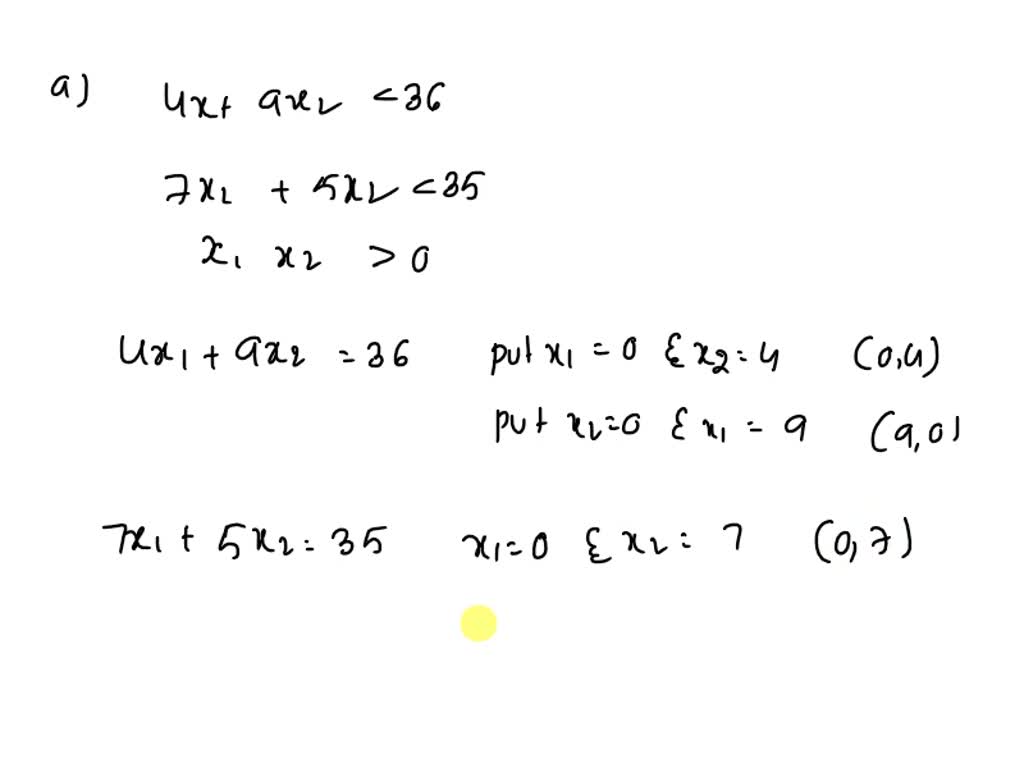 a) 4x+ 9x2 <36
7x2 + 5x2 <35
x1 x2 > 0
4x1 + 9x2 = 36 put x1 = 0 & x2 = 4 (0,4)
put x2=0 & x1 = 9 (9,0)
7x1 + 5x2 = 35 x1=0 & x2 = 7 (0,7)